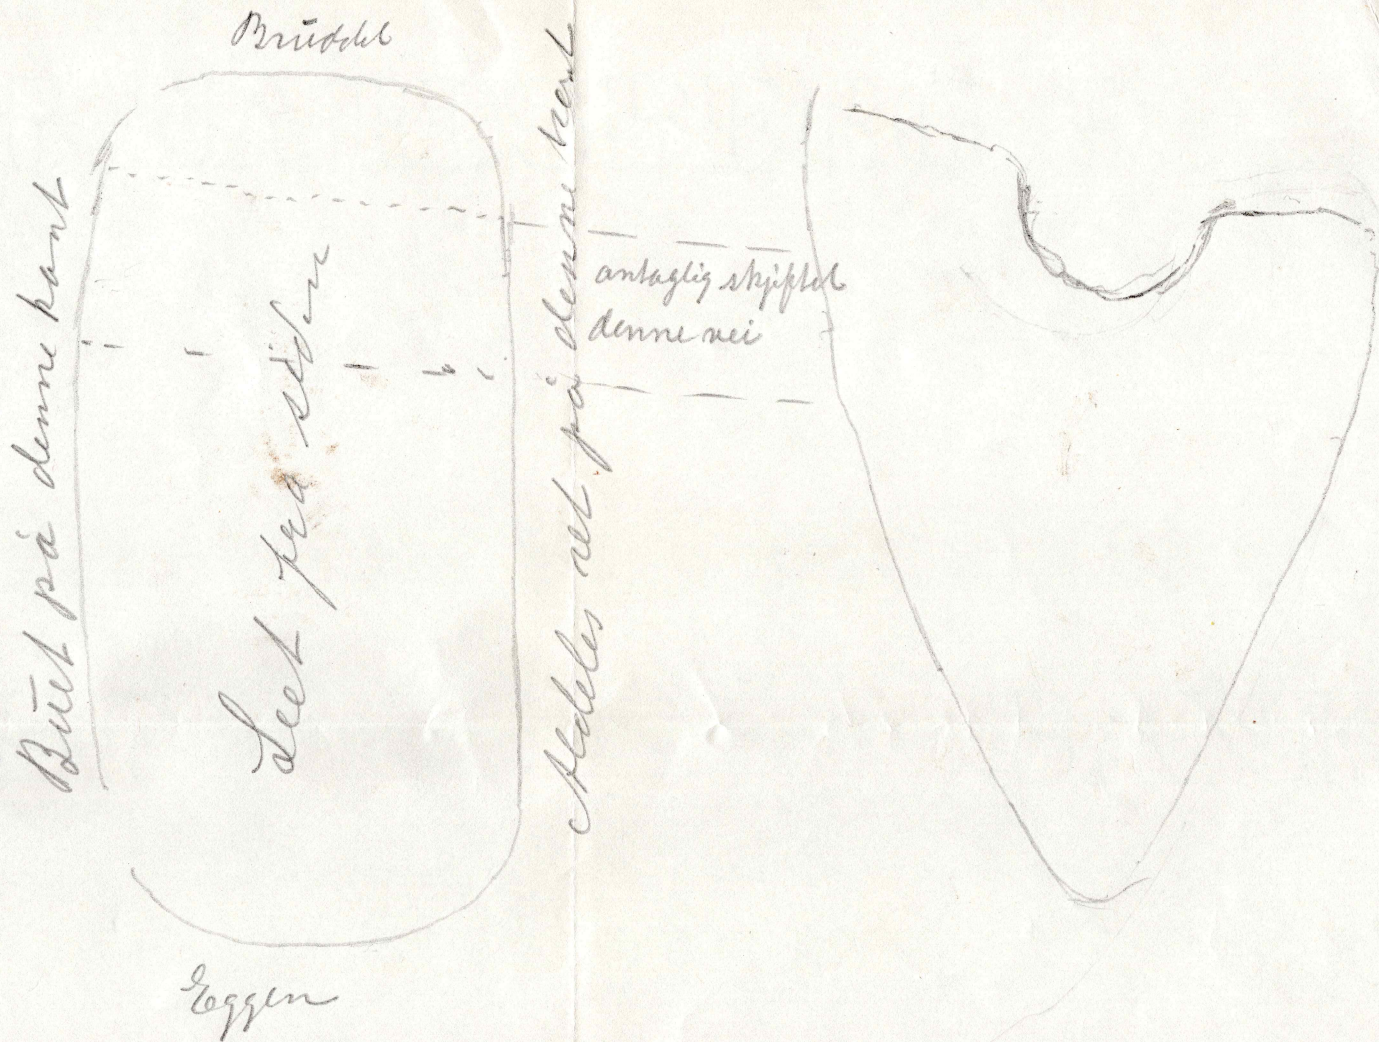 Bruddet
Buet på denne kant
Seet fra siden
Aldeles ret på denne kant
antaglig skjeftet
denne vei
Eggen